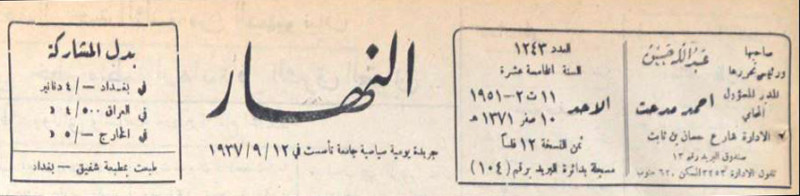 صاحبها
ورئيس تحريرها
عبد الله حسين
المدير المسؤول
المحامي
احمد مدحت
الادارة شارع حسان بن ثابت
صندوق البريد رقم ١٣
تلفون الادارة ٣٢٥٣ السكن ٦٢٠ جنوب
العدد ١٢٤٣
السنة الخامسة عشرة
الاحد
١١ ت٢ - ١٩٥١
١٠ صفر ١٣٧١ هـ
ثمن النسخة ١٢ فلساً
مسجلة بدائرة البريد برقم (١٠٤)
النهار
جريدة يومية سياسية جامعة تأسست في ١٩٣٧/٩/١٢
بدل المشاركة
في بغداد -/٤ دنانير
في العراق ٤/٥٠٠ د
في الخارج -/٥ د
طبعت بمطبعة شفيق - بغداد